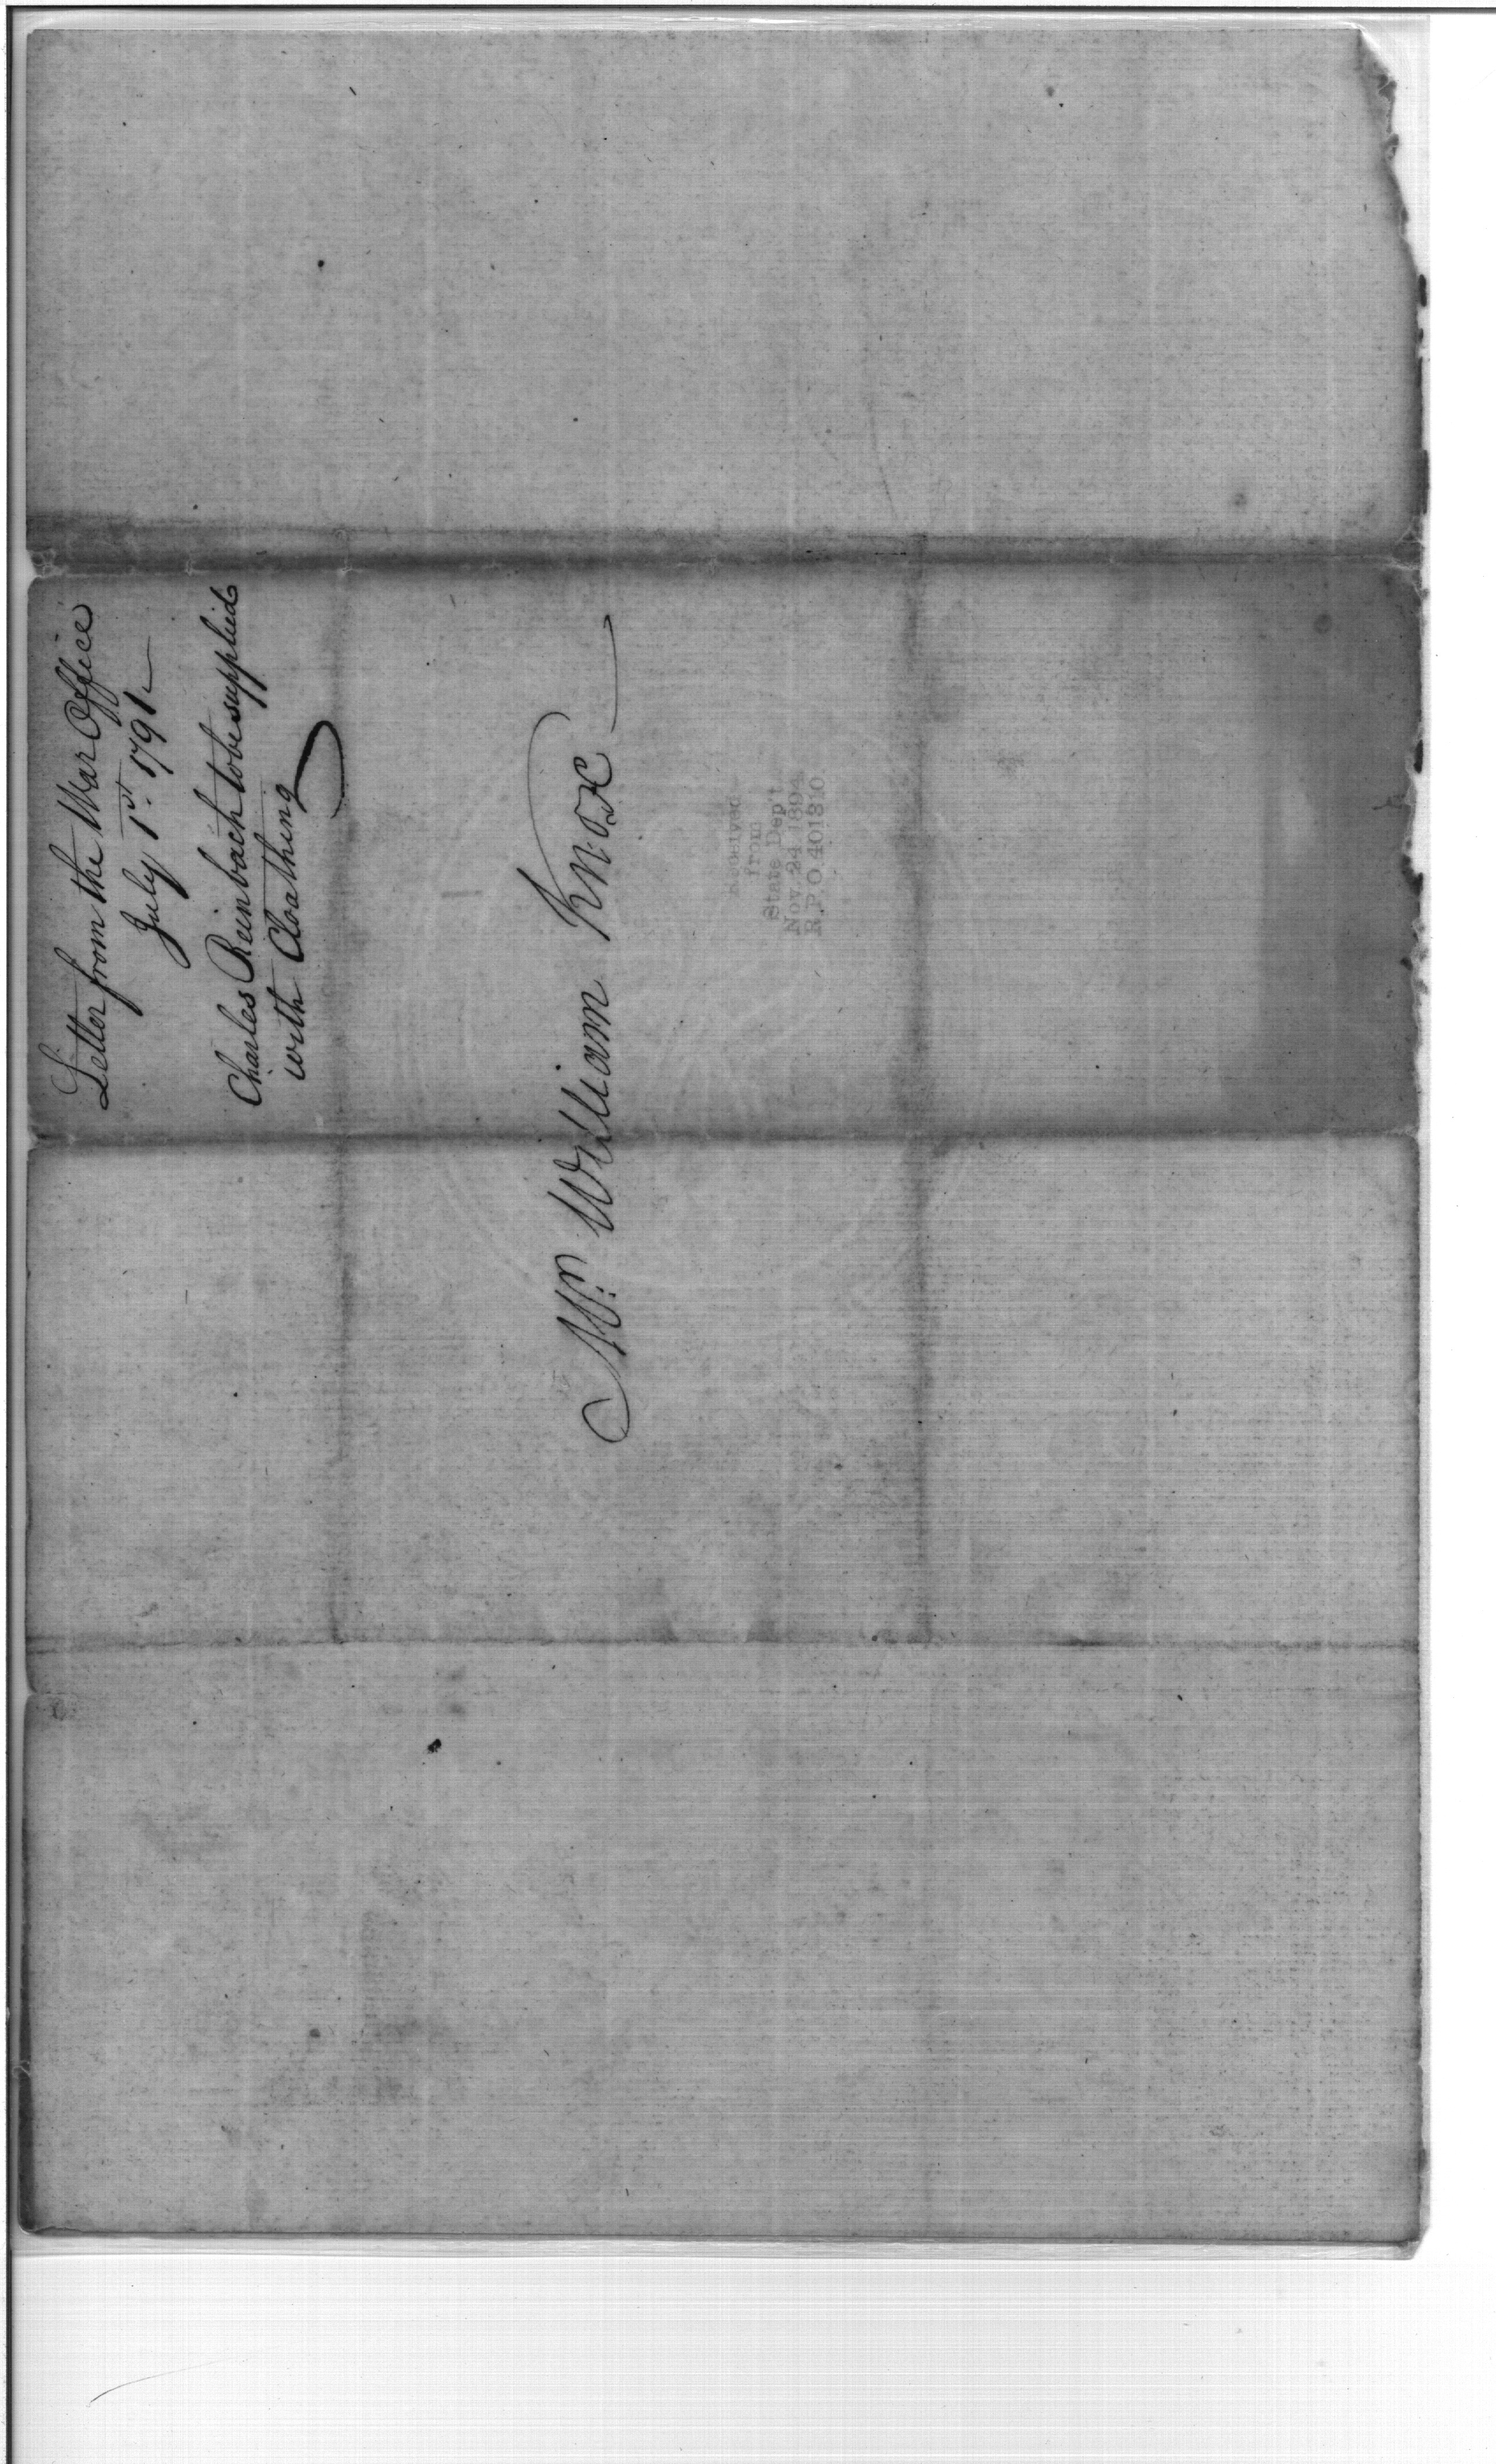 Letter from the War Office
July 1st. 1791
Charles Reinbach to be supplied
with Cloathing
Mr. William Knox
Received
from
State Dep't
Nov. 24 1894
R.P.O. 401310